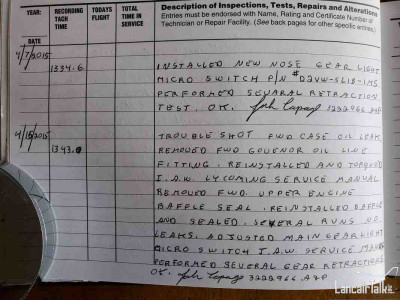 YEAR:
RECORDING TACH TIME
TODAYS FLIGHT
TOTAL TIME IN SERVICE
Description of Inspections, Tests, Repairs and Alterations
Entries must be endorsed with Name, Rating and Certificate Number of
Technician or Repair Facility. (See back pages for other specific entries.)
DATE
4/7/2015
1334.6
INSTALLED NEW NOSE GEAR LIGHT
MICRO SWITCH P/N #D2VW-5L1B-1MS
PERFORMED SEVERAL RETRACTION
TEST. OK. 3232966 A&P
4/15/2015
1343.0
TROUBLE SHOT FWD CASE OIL LEAK
REMOVED FWD GOVENOR OIL LINE
FITTING. REINSTALLED AND TORQUED
I.A.W. LYCOMING SERVICE MANUAL
REMOVED FWD. UPPER ENGINE
BAFFLE SEAL. REINSTALLED BAFFLE
AND SEALED. SEVERAL RUNS NO
LEAKS. ADJUSTED MAIN GEAR LIGHT
MICRO SWITCH I.A.W. SERVICE MANUAL
PERFORMED SEVERAL GEAR RETRACTIONS
OK. 3232966 A&P
LancairTalk